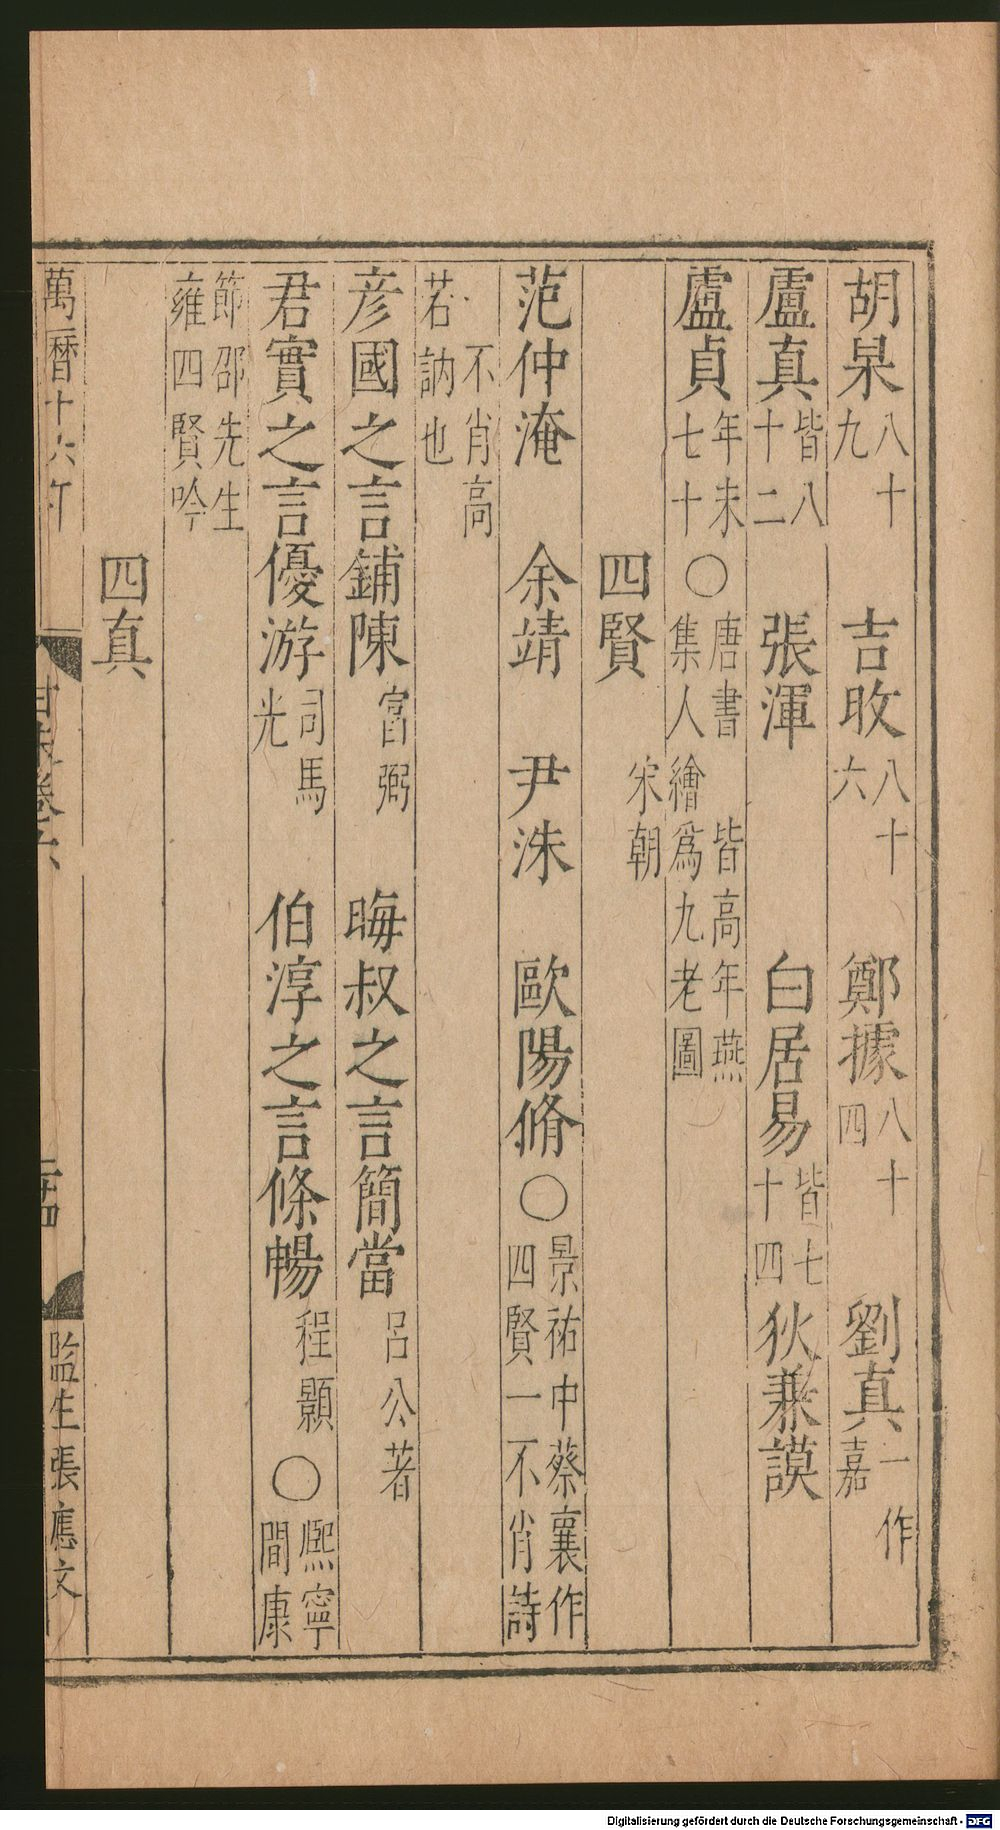 胡杲八十九　吉旼八十六　鄭據八十四　劉真一作嘉
盧真　張渾皆八十二　白居易　狄兼謨皆七十四
盧貞年未七十○唐書皆高年燕集人繪爲九老圖
四賢宋朝
范仲淹　余靖　尹洙　歐陽脩○景祐中蔡襄作四賢一不肖詩
不肖高若訥也
彥國之言鋪陳富弼　晦叔之言簡當呂公著
君實之言優游司馬光　伯淳之言條暢程顥○熈寧間康
節邵先生雍四賢吟
四真
萬曆十六
監生張應文
Digitalisierung gefördert durch die Deutsche Forschungsgemeinschaft - DFG